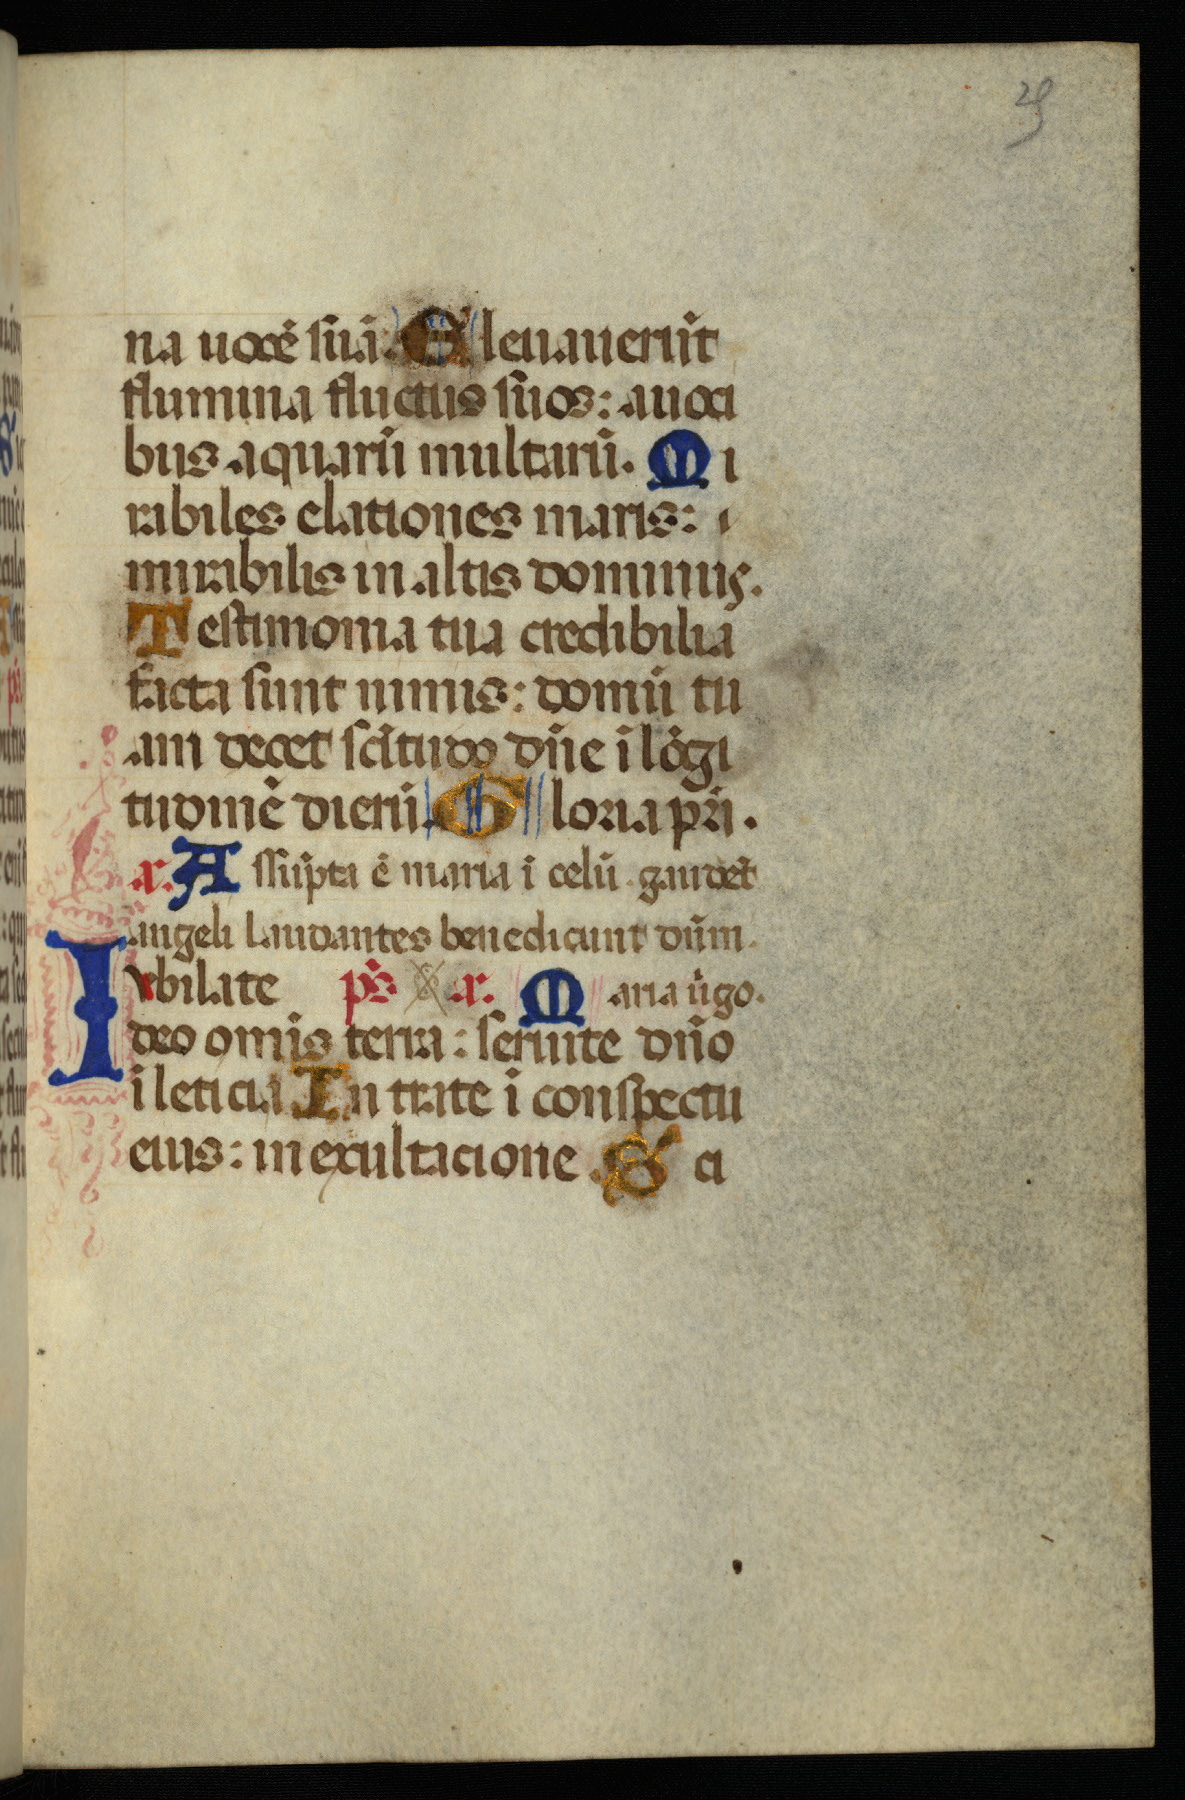 29
na uocē suā. E leuauerūt
flumina fluctus suos: a uoci
bus aquarū multarū. M i
rabiles elationes maris:
mirabilis in altis dominus.
T estimonia tua credibilia
facta sunt nimis: domū tu
am decet sc̄itudo dn̄e ī lōgi
tudinē dierū. G loria pr̄i.
a. A ssūpta ē maria ī celū. gaudēt
angeli laudantes benedicunt dūm.
I vbilate ps̄ a. M aria ūgo.
deo omīs terra: seruite dn̄o
ī leticia I n trate ī conspectu
eius: in exultacione S ci